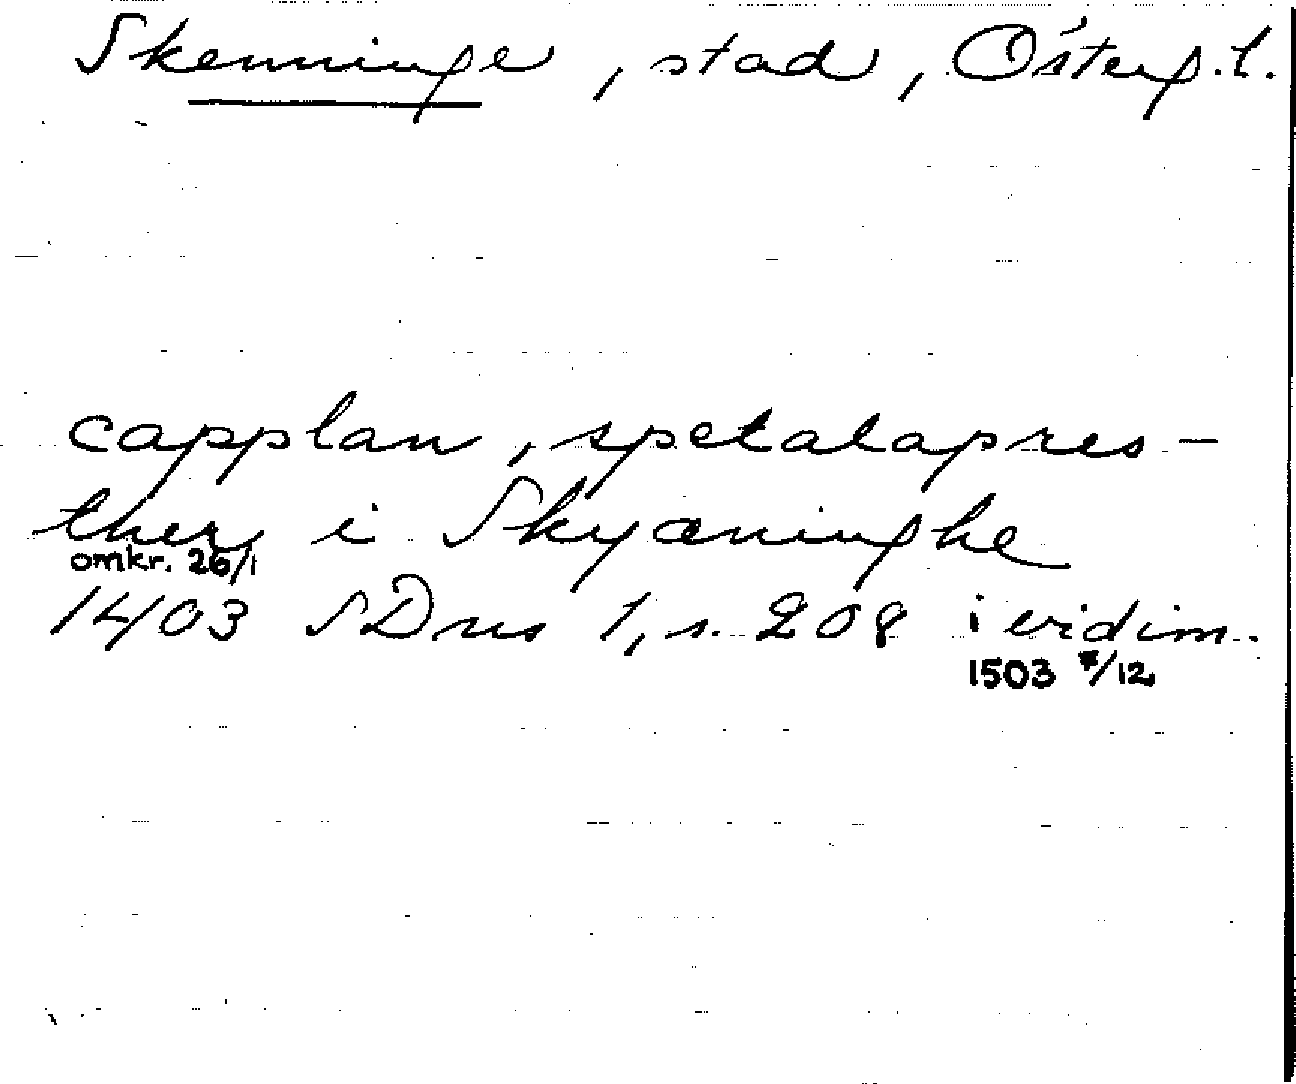 Skenninge, stad, Österg.l.
capplan, spetalapres-
ther i Skyæninghe
omkr. 26/1
1403 SDns 1, s. 208 i vidim.
1503 /12